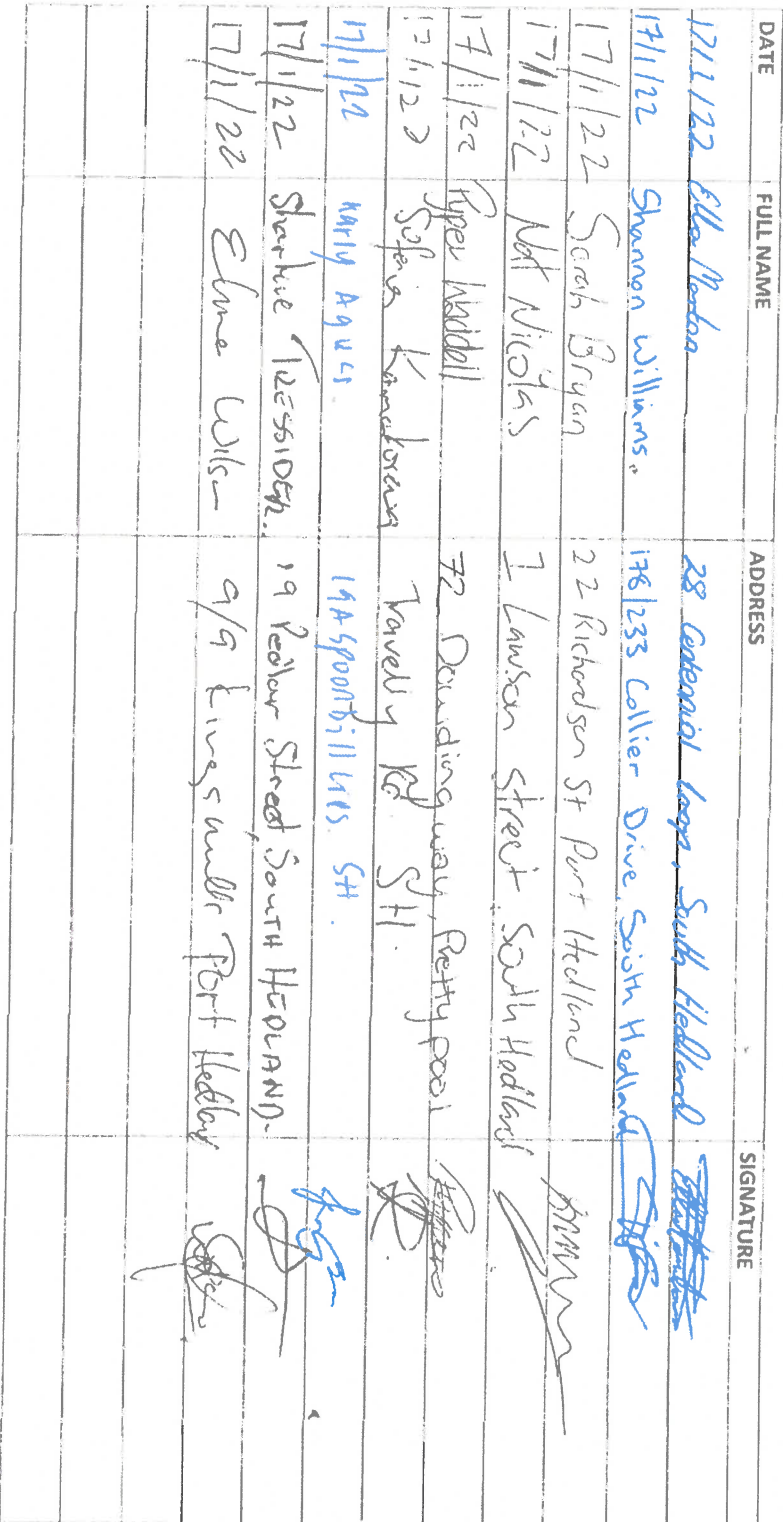 DATE FULL NAME ADDRESS SIGNATURE
17/1/22 Ella 28 Centennial Loop, South Hedland
17/1/22 Shannon Williams. 178/233 Collier Drive, South Hedland
17/1/22 Sarah Bryan 22 Richardson St Port Hedland
17/1/22 Nat Nicolas 1 Lawson street, South Hedland
17/1/22 Pyper Waddell 72 Dowding way, Pretty pool
17/1/22 Sofaia Travely Rd SH.
17/1/22 19A Spoonbill SH.
17/1/22 Sharlie TRESSIDER. 19 Pedlar Street, SOUTH HEDLAND.
17/1/22 9/9 Kingsmill Port Hedland